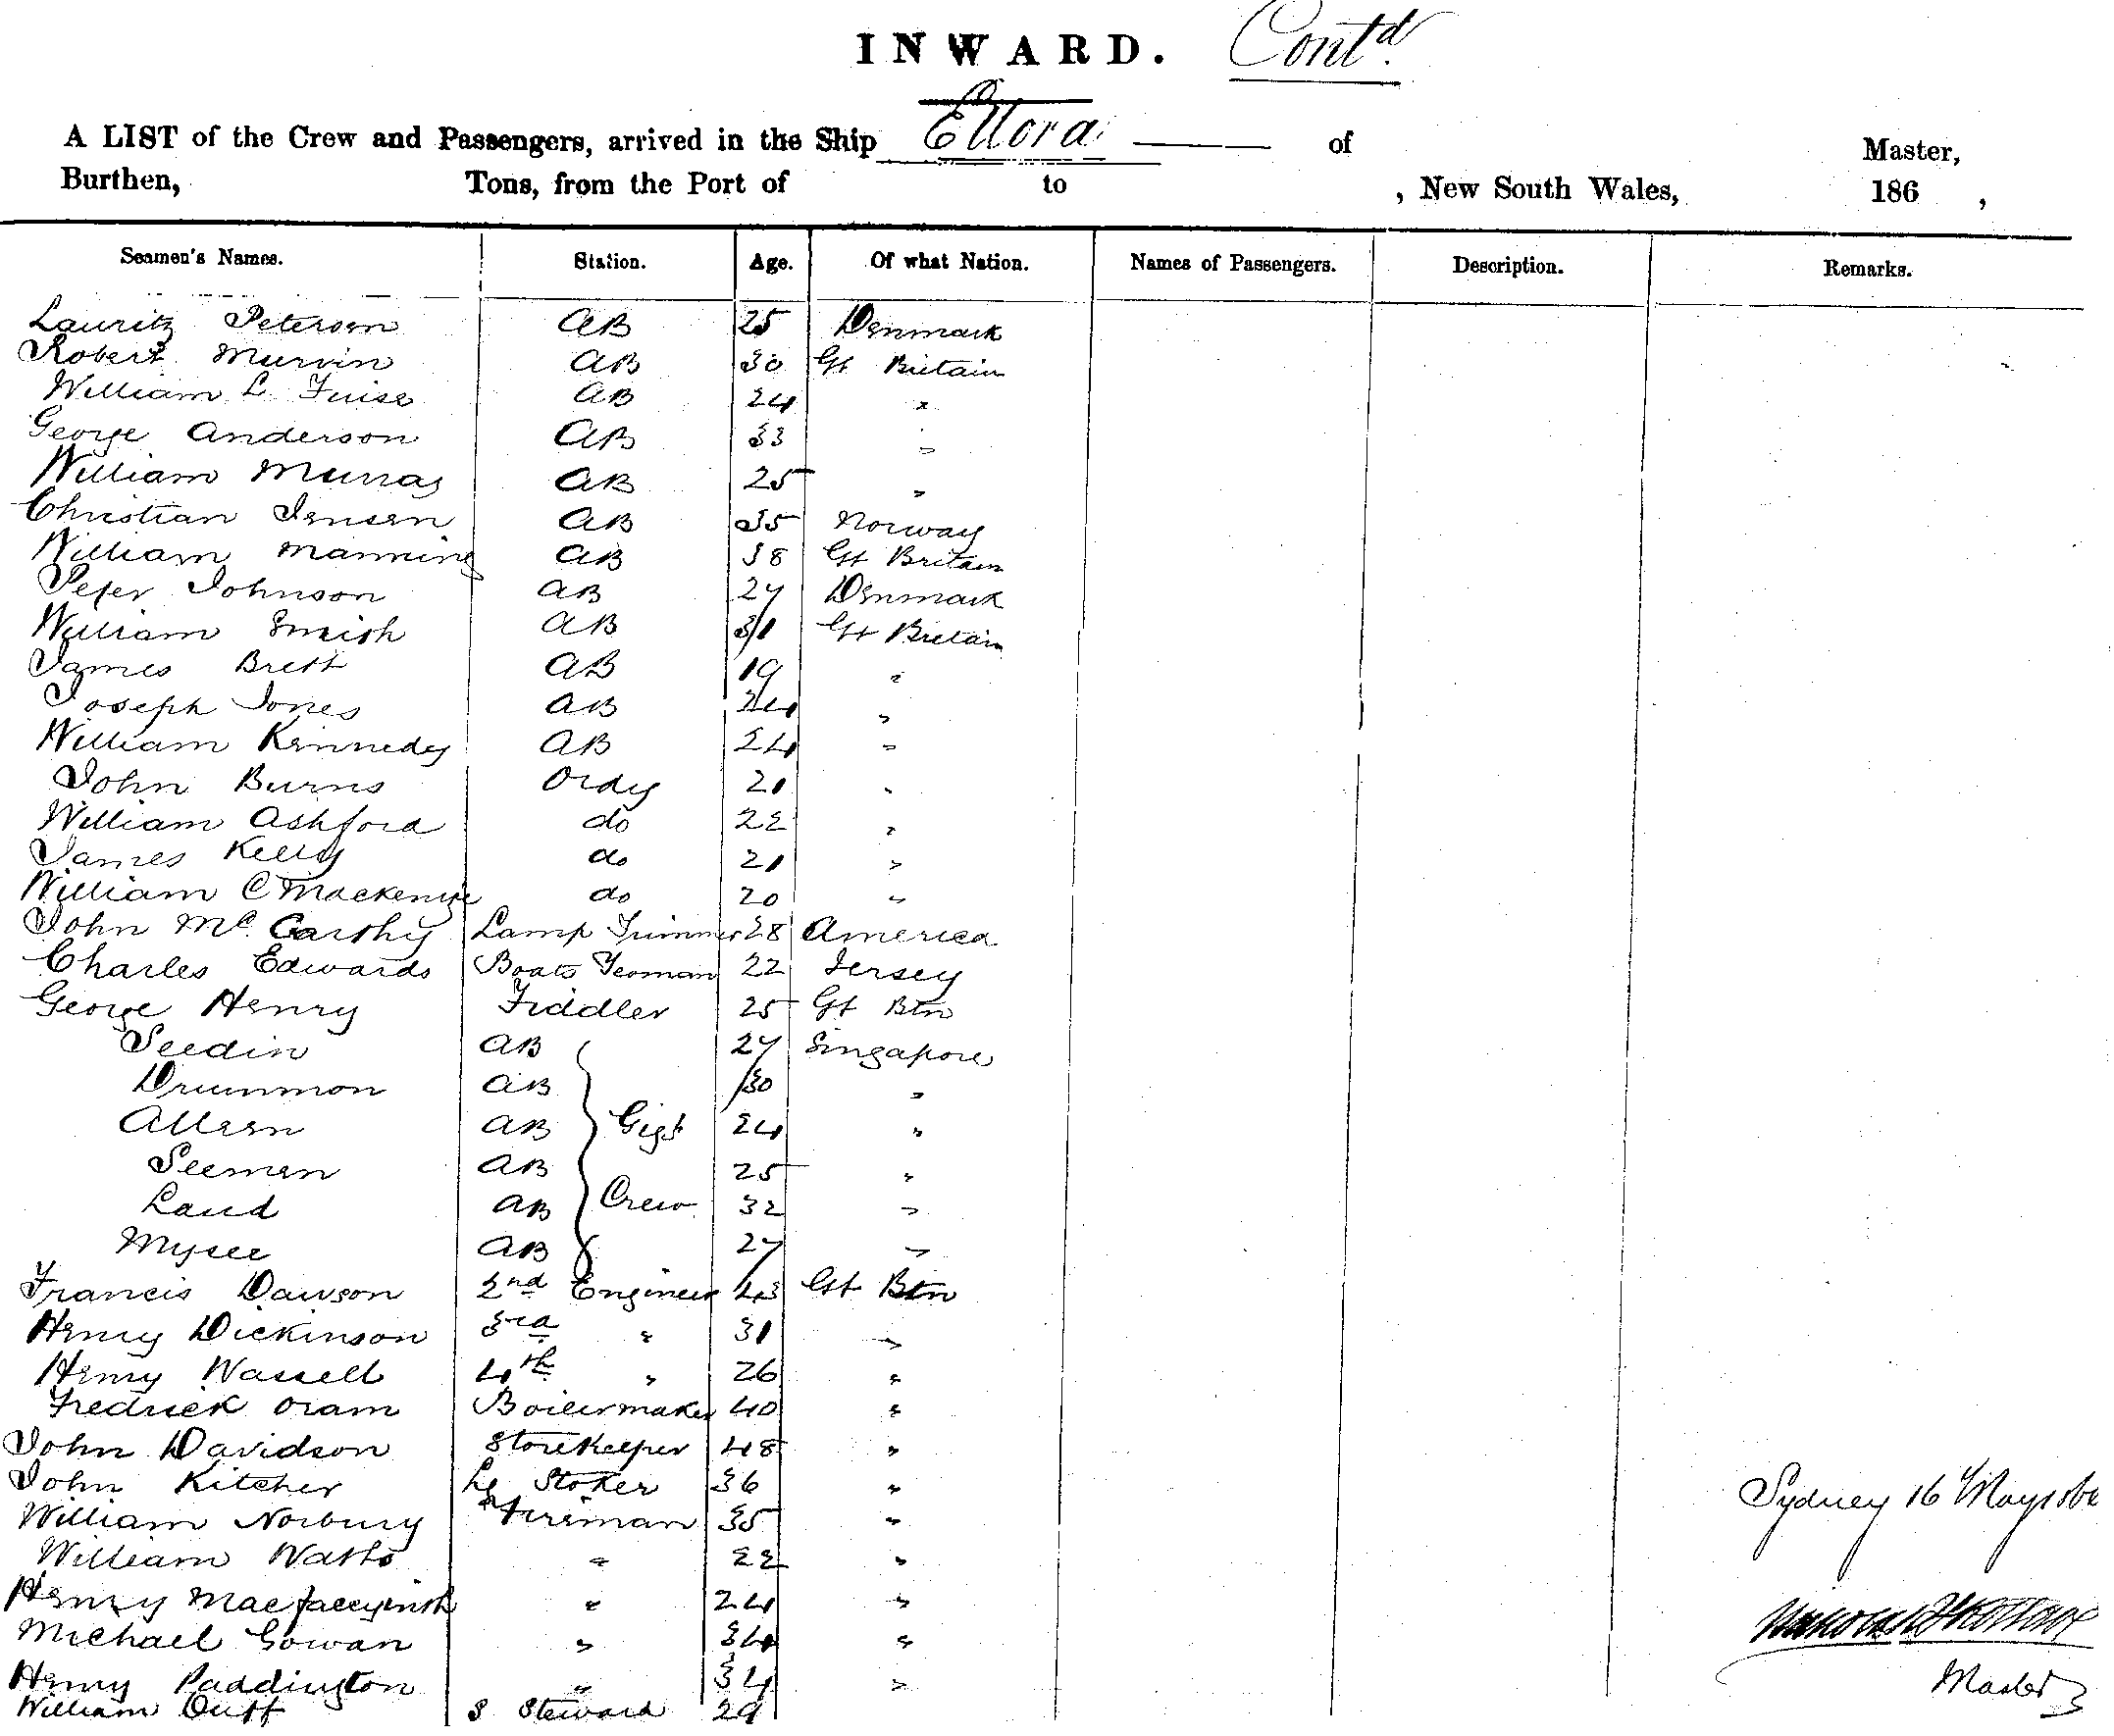 INWARD. Contd.
A LIST of the Crew and Passengers, arrived in the Ship Ellora of Master,
Burthen, Tons, from the Port of to , New South Wales, 186 ,
Seamen's Names. Station. Age. Of what Nation. Names of Passengers. Description. Remarks.
Lauritz Petersen AB 25 Denmark
Robert Murvin AB 30 Gt Britain
William L AB 24 "
George Anderson AB 33 "
William Murray AB 25 "
Christian Jensen AB 35 Norway
William Manning AB 38 Gt Britain
Peter Johnson AB 27 Denmark
William Smith AB 31 Gt Britain
James Brett AB 19 "
Joseph Jones AB 24 "
William Kennedy AB 24 "
John Burns Ordy 21 "
William Ashford do 22 "
James Kelly do 21 "
William C Mackenzie do 20 "
John McCarthy Lamp Trimmer 28 America
Charles Edwards Boats Yeoman 22 Jersey
George Henry Fiddler 25 Gt Btn
Seedin AB 27 Singapore
Drummon AB 30 "
Alleen AB Gigs 24 "
Seemen AB 25 "
Laud AB Crew 32 "
Mysee AB 27 "
Francis Dawson 2nd Engineer 43 Gt Btn
Henry Dickinson 3rd " 31 "
Henry Wassell 4th " 26 "
Fredrick Oram Boilermaker 40 "
John Davidson Storekeeper 48 "
John Kitcher Lg Stoker 36 "
William Norbury Fireman 35 "
William Watts " 22 "
Henry " 24 "
Michael Gowan " 34 "
Henry Paddington " 34 "
William Cuff S Steward 29
Sydney 16 May
Master